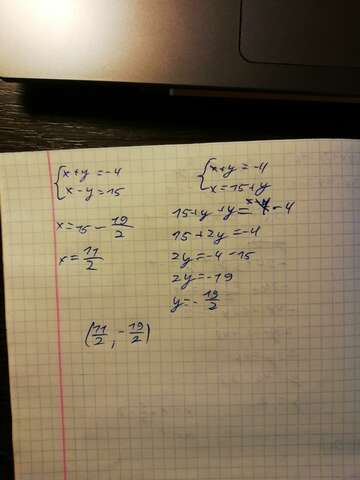 {x+y=-4
{x-y=15
x=15-19/2
x=11/2
(11/2, -19/2)
{x+y=-4
{x=15+y
15+y+y=-4
15+2y=-4
2y=-4-15
2y=-19
y=-19/2